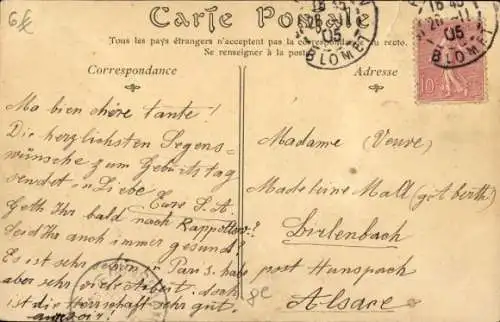 6
Carte Postale
Tous les pays étrangers n'acceptent pas la correspondance au recto.
Se renseigner à la poste
Correspondance
Adresse
18 45
28 - 11
05
BLOMET
10
Ma bien chère tante!
Die herzlichsten Segens-
wünsche zum Geburtstag
sendet in Liebe
Eure S. A.
Geht Ihr bald nach Rappoltsw.??
Seid Ihr auch immer gesund?
Es ist sehr schön in Paris. habe
aber sehr viele Arbeit. doch
ist die Herrschaft sehr gut.
Madame (Veuve)
Madeleine Mall (göt berthi)
Birlenbach
post Hunspach
Alsace